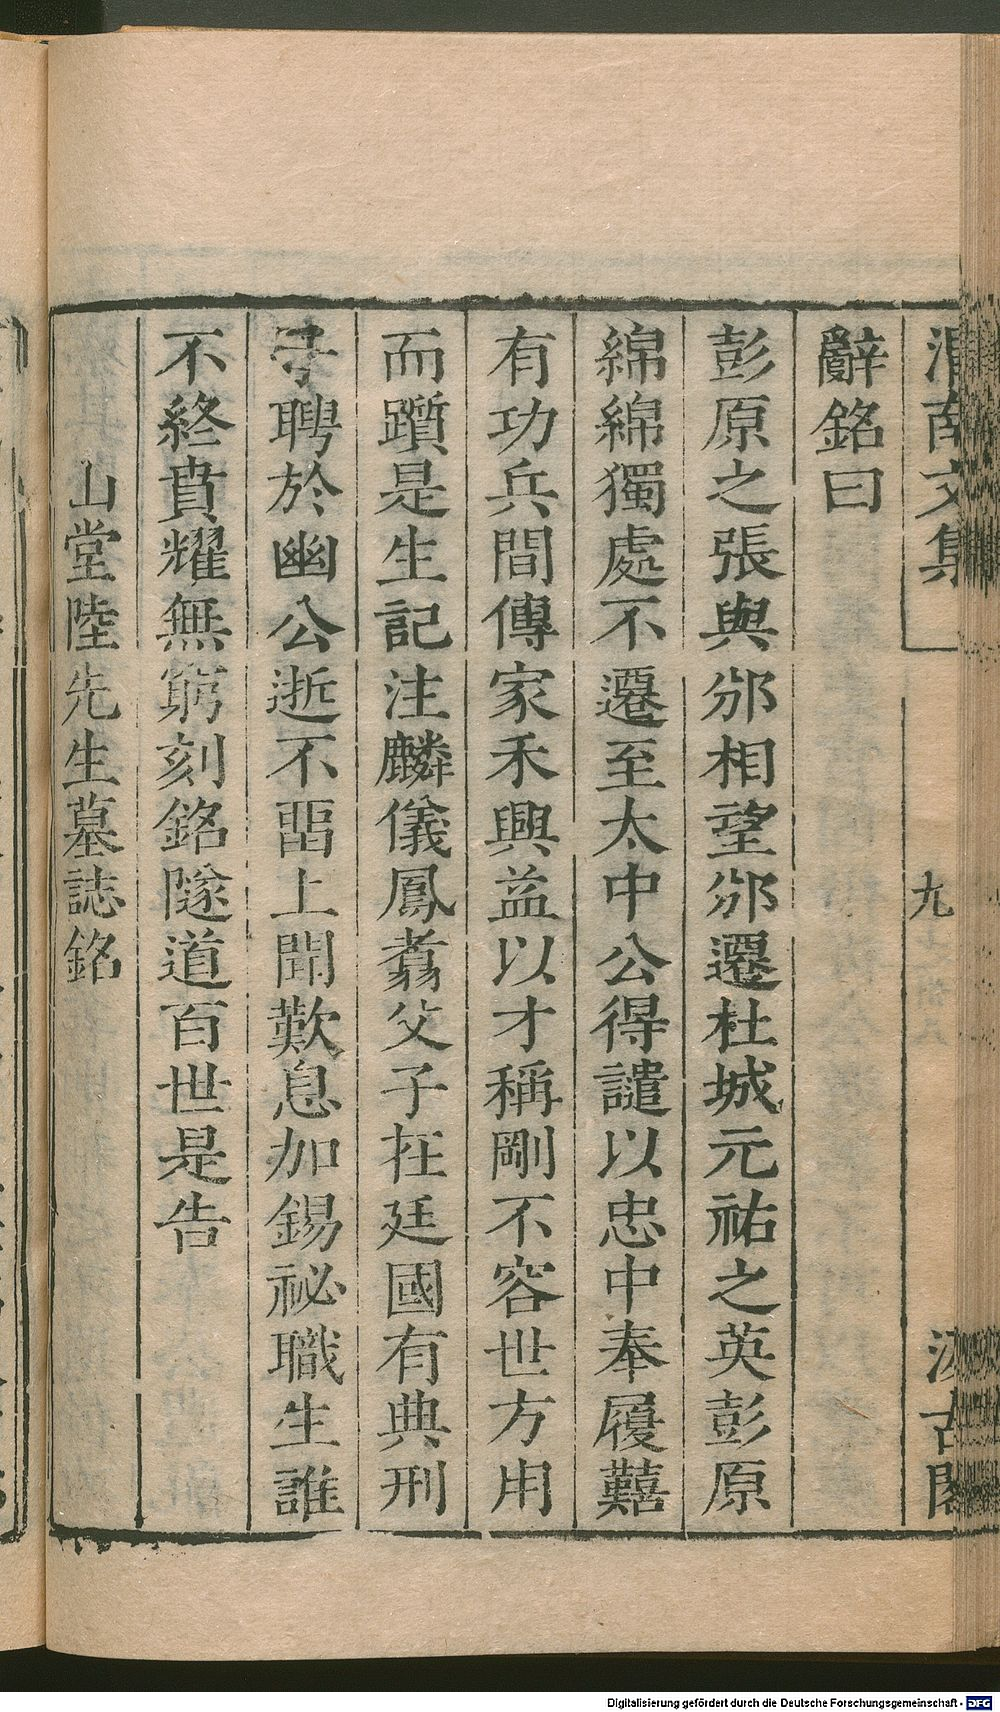 渭南文集
九
汲古閣
辭銘曰
彭原之張與邠相望邠遷杜城元祐之英彭原
綿綿獨處不遷至太中公得譴以忠中奉履囏
有功兵間傳家禾興益以才稱剛不容世方用
而躓是生記注麟儀鳳翥父子在廷國有典刑
聘於幽公逝不畱上聞歎息加錫祕職生誰
不終賁耀無窮刻銘隧道百世是告
山堂陸先生墓誌銘
Digitalisierung gefördert durch die Deutsche Forschungsgemeinschaft - DFG